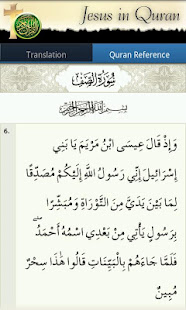 Jesus in Quran
Translation
Quran Reference
سُورَةُ الصَّفّ
بِسْمِ اللَّهِ الرَّحْمَٰنِ الرَّحِيمِ
6.
وَإِذْ قَالَ عِيسَى ابْنُ مَرْيَمَ يَا بَنِي
إِسْرَائِيلَ إِنِّي رَسُولُ اللَّهِ إِلَيْكُمْ مُصَدِّقًا
لِمَا بَيْنَ يَدَيَّ مِنَ التَّوْرَاةِ وَمُبَشِّرًا
بِرَسُولٍ يَأْتِي مِنْ بَعْدِي اسْمُهُ أَحْمَدُ ۖ
فَلَمَّا جَاءَهُمْ بِالْبَيِّنَاتِ قَالُوا هَٰذَا سِحْرٌ
مُبِينٌ